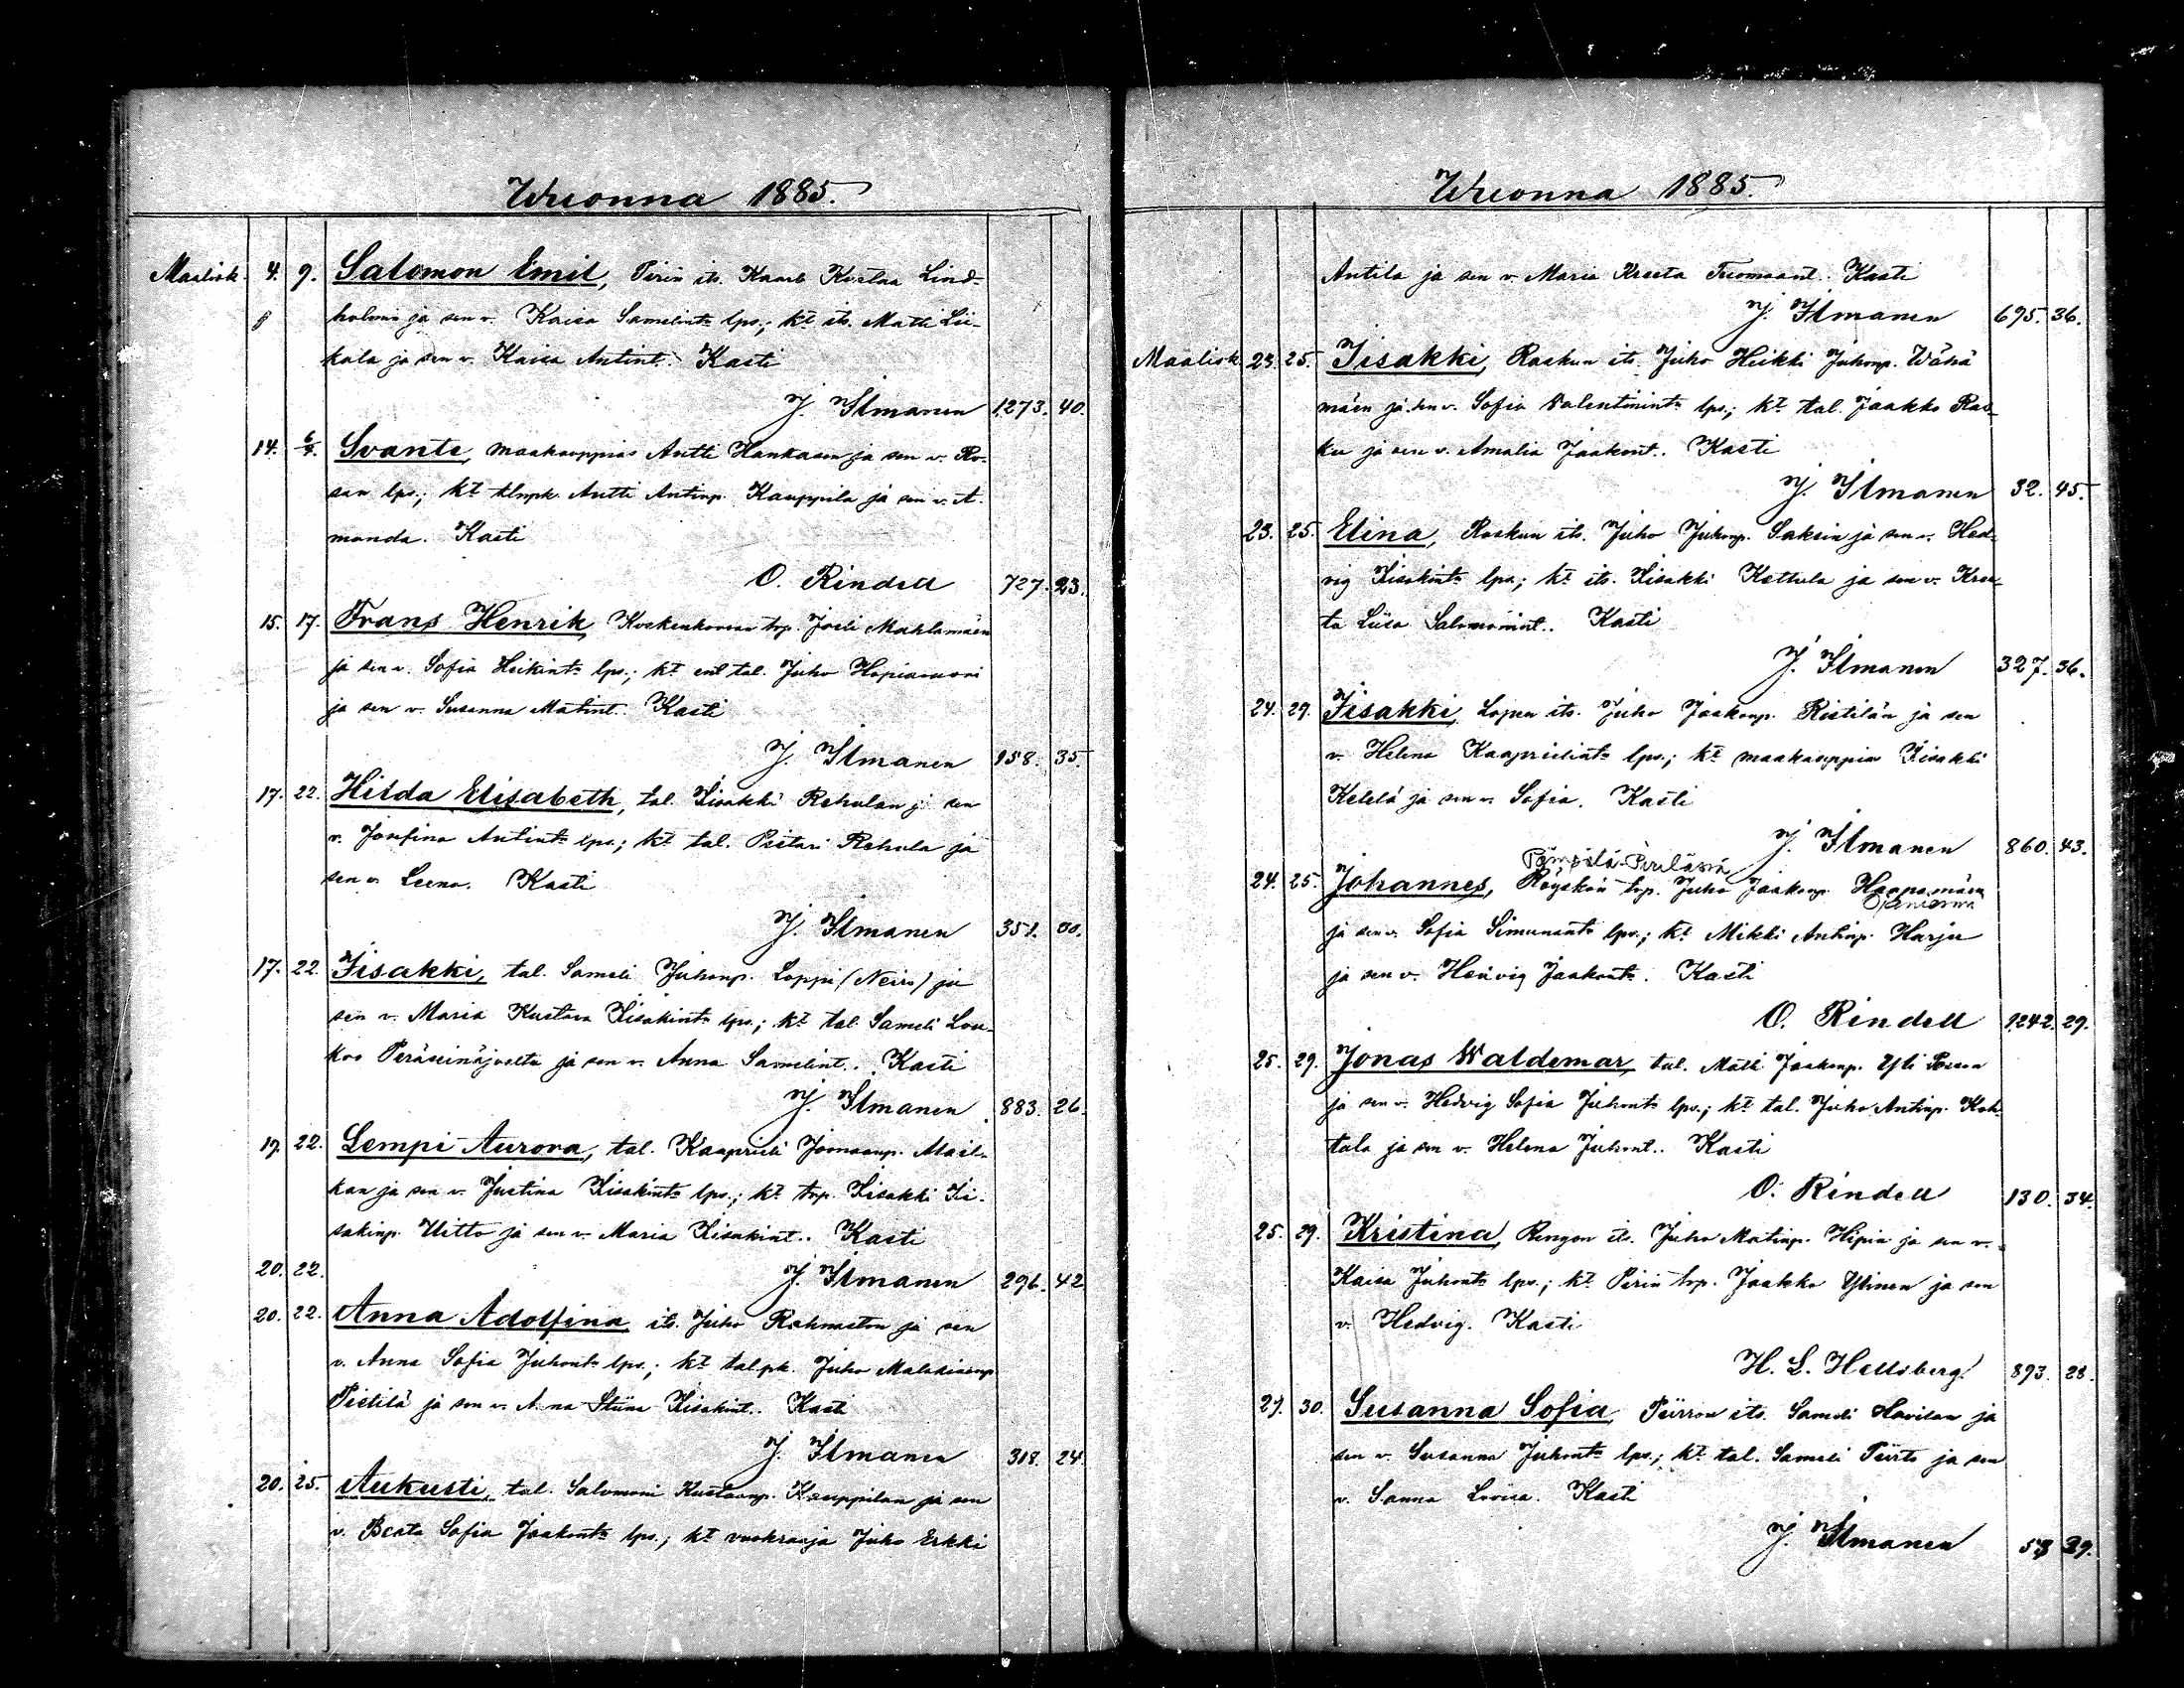 Wuonna 1885.
Maalisk. 4. 9. Salomon Emil, Pirin its. Kaarle Kustaa Lind-
holmin ja sen v. Kaisa Samelint:n lps.; kt its. Matti Lii-
kala ja sen v. Kaisa Antint. Kasti
J. Ilmanen 1273. 40.
14. 6/4. Svante, maakauppias Antti Hankasen ja sen v. Ro-
san lps.; kt tlnpk. Antti Antinp. Kauppila ja sen v. A-
manda. Kasti
O. Rindell 727. 23.
15. 17. Frans Henrik, Koskenkorvan trp. Joeli Mahlamäen
ja sen v. Sofia Heikint:n lps.; kt ent tal. Juho Hopiavuori
ja sen v. Susanna Matint. Kasti
J. Ilmanen 958. 35.
17. 22. Hilda Elisabeth, tal. Iisakki Rehulan ja sen
v. Josefina Antint:n lps.; kt tal. Pietari Rehula ja
sen v. Leena. Kasti
J. Ilmanen 351. 00.
17. 22. Iisakki, tal. Sameli Juhonp. Loppi (Neiro) ja
sen v. Maria Kustava Iisakint:n lps.; kt tal. Sameli Lou-
koo Peräseinäjoelta ja sen v. Anna Samelint.. Kasti
J. Ilmanen 883. 26.
19. 22. Lempi Aurora, tal. Kaaprieli Joonaanp. Mail-
kan ja sen v. Justina Iisakint:n lps.; kt trp. Iisakki Ii-
sakinp. Uitto ja sen v. Maria Iisakint.. Kasti
20. 22. J. Ilmanen 296. 42
20. 22. Anna Adolfina its. Juho Rahnaston ja sen
v. Anna Sofia Juhont:n lps.; kt tal.pk. Juho Malakiaanp.
Pistilä ja sen v. Anna Stiina Iisakint.. Kasti
J. Ilmanen 318. 24.
20. 25. Aukusti, tal. Salomoni Kustaanp. Kauppilan ja sen
v. Beata Sofia Jaakont:n lps.; kt vuokraaja Juho Erkki
Wuonna 1885.
Antila ja sen v. Maria Kreeta Tuomaant. Kasti
J. Ilmanen 695. 36.
Maalisk. 23. 25. Iisakki, Raskun its. Juho Heikki Juhonp. Wähä
mäen ja sen v. Sofia Valentinint:n lps.; kt tal. Jaakko Ras-
ku ja sen v. Amalia Jaakont.. Kasti
J. Ilmanen 32. 45.
23. 25. Elina, Raskun its. Juho Juhonp. Saksin ja sen v. Hed-
vig Iisakint:n lps.; kt its. Iisakki Kettula ja sen v. Kree-
ta Liisa Salomonint.. Kasti
J. Ilmanen 327. 36.
24. 29. Iisakki, Lopen its. Juho Jaakonp. Ristilän ja sen
v. Helena Kaaprielint:n lps.; kt maakauppias Iisakki
Ketelä ja sen v. Sofia. Kasti
J. Ilmanen 860. 43.
24. 25. Johannes, Röyskön trp. Juho Jaakonp. Haapamäen
ja sen v. Sofia Simunant:n lps.; kt Mikki Antinp. Harju
ja sen v. Hedvig Jaakont:n. Kasti
O. Rindell 1242. 29.
25. 29. Jonas Waldemar, tal. Matti Jaakonp. Yli
ja sen v. Hedvig Sofia Juhont:n lps.; kt tal. Juho Antinp. Koh-
tala ja sen v. Helena Juhont.. Kasti
O. Rindell 130. 34.
25. 29. Kristina, Rengon its. Juho Matinp. Hipin ja sen v.
Kaisa Juhont:n lps.; kt Pirin trp. Jaakko Ylinen ja sen
v. Hedvig. Kasti
H. L. Hellsberg. 893. 28.
27. 30. Susanna Sofia, Piirron its. Sameli Havilan ja
sen v. Susanna Juhont:n lps.; kt tal. Sameli Piirto ja sen
v. Sanna Loviisa. Kasti
J. Ilmanen 39.